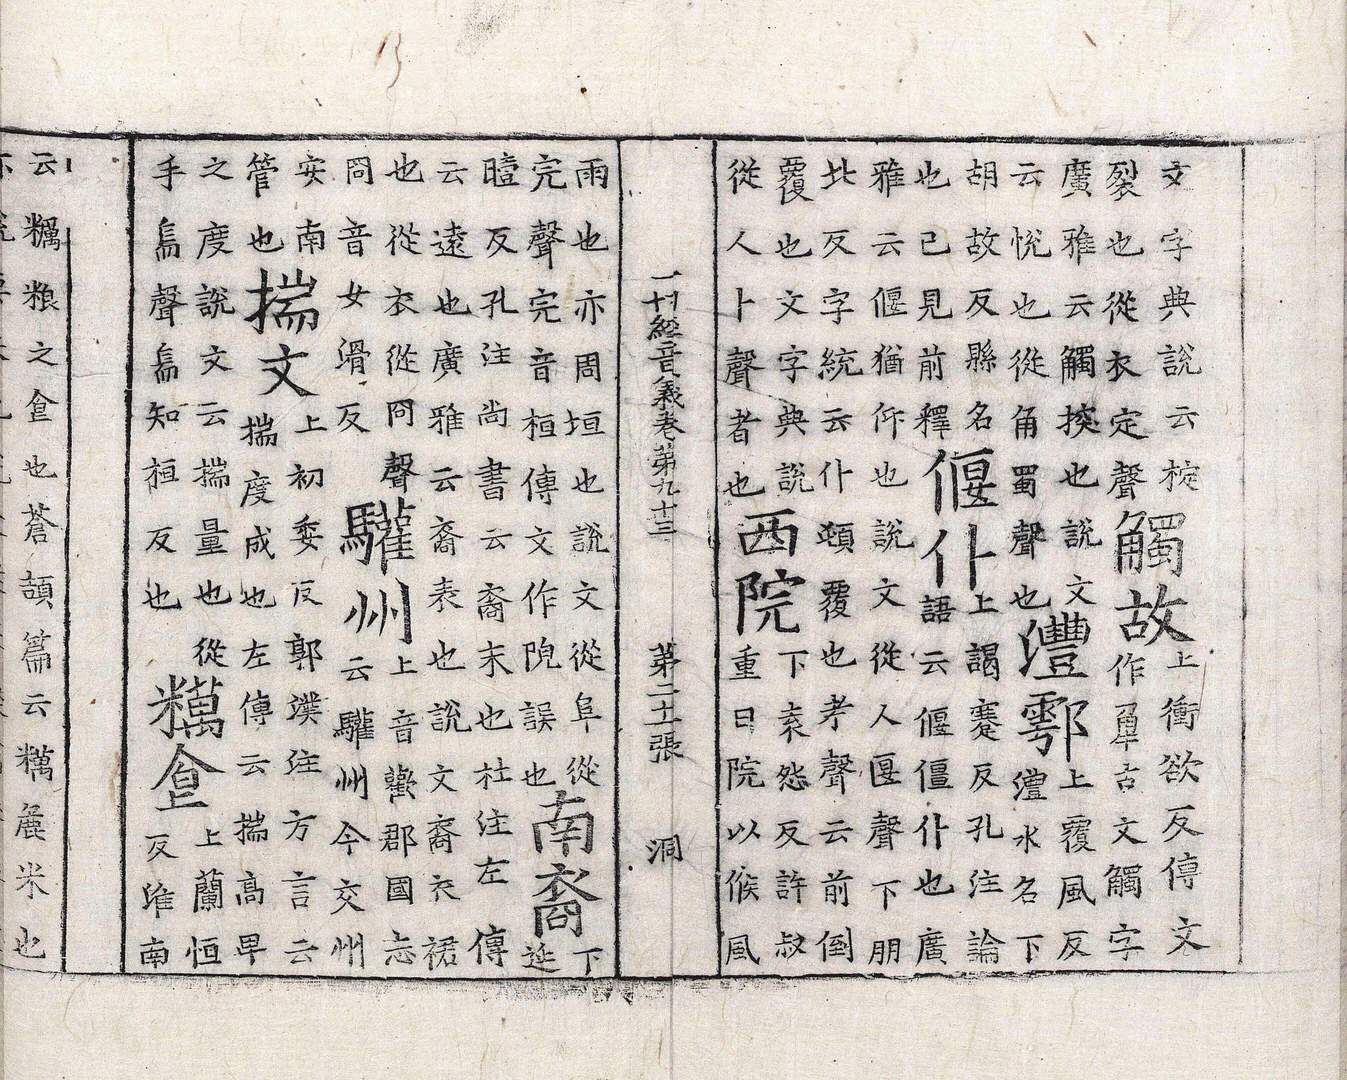 文字典說云棙
裂也從衣定聲
觸故
上衝欲反傳文
作𧢻古文觸字
廣雅云觸揬也說文
云悅也從角蜀聲也
灃鄠
上覆風反
灃水名下
胡故反縣名
也已見前釋
偃仆
上謁蹇反孔注論
語云偃僵仆也廣
雅云偃猶仰也說文從人匽聲下朋
北反字統云仆頓覆也考聲云前倒
覆也文字典說
從人卜聲者也
西院
下袁怨反許叔
重曰院以候風
一切經音義卷第九十三 第二十張 洞
雨也亦周垣也說文從阜從
完聲完音桓傳文作誤也
南裔
下
延
曀反孔注尚書云裔末也杜注左傳
云遠也廣雅云裔表也說文裔衣裾
也從衣從冏聲
冏音女滑反
驩州
上音歡郡國志
云驩州今交州
安南
管也
揣文
上初委反郭璞注方言云
揣度成也左傳云揣高卑
之度說文云揣量也從
手耑聲耑知桓反也
糲食
上蘭恒
反淮南
云糲粮之食也蒼頡篇云糲麁米也